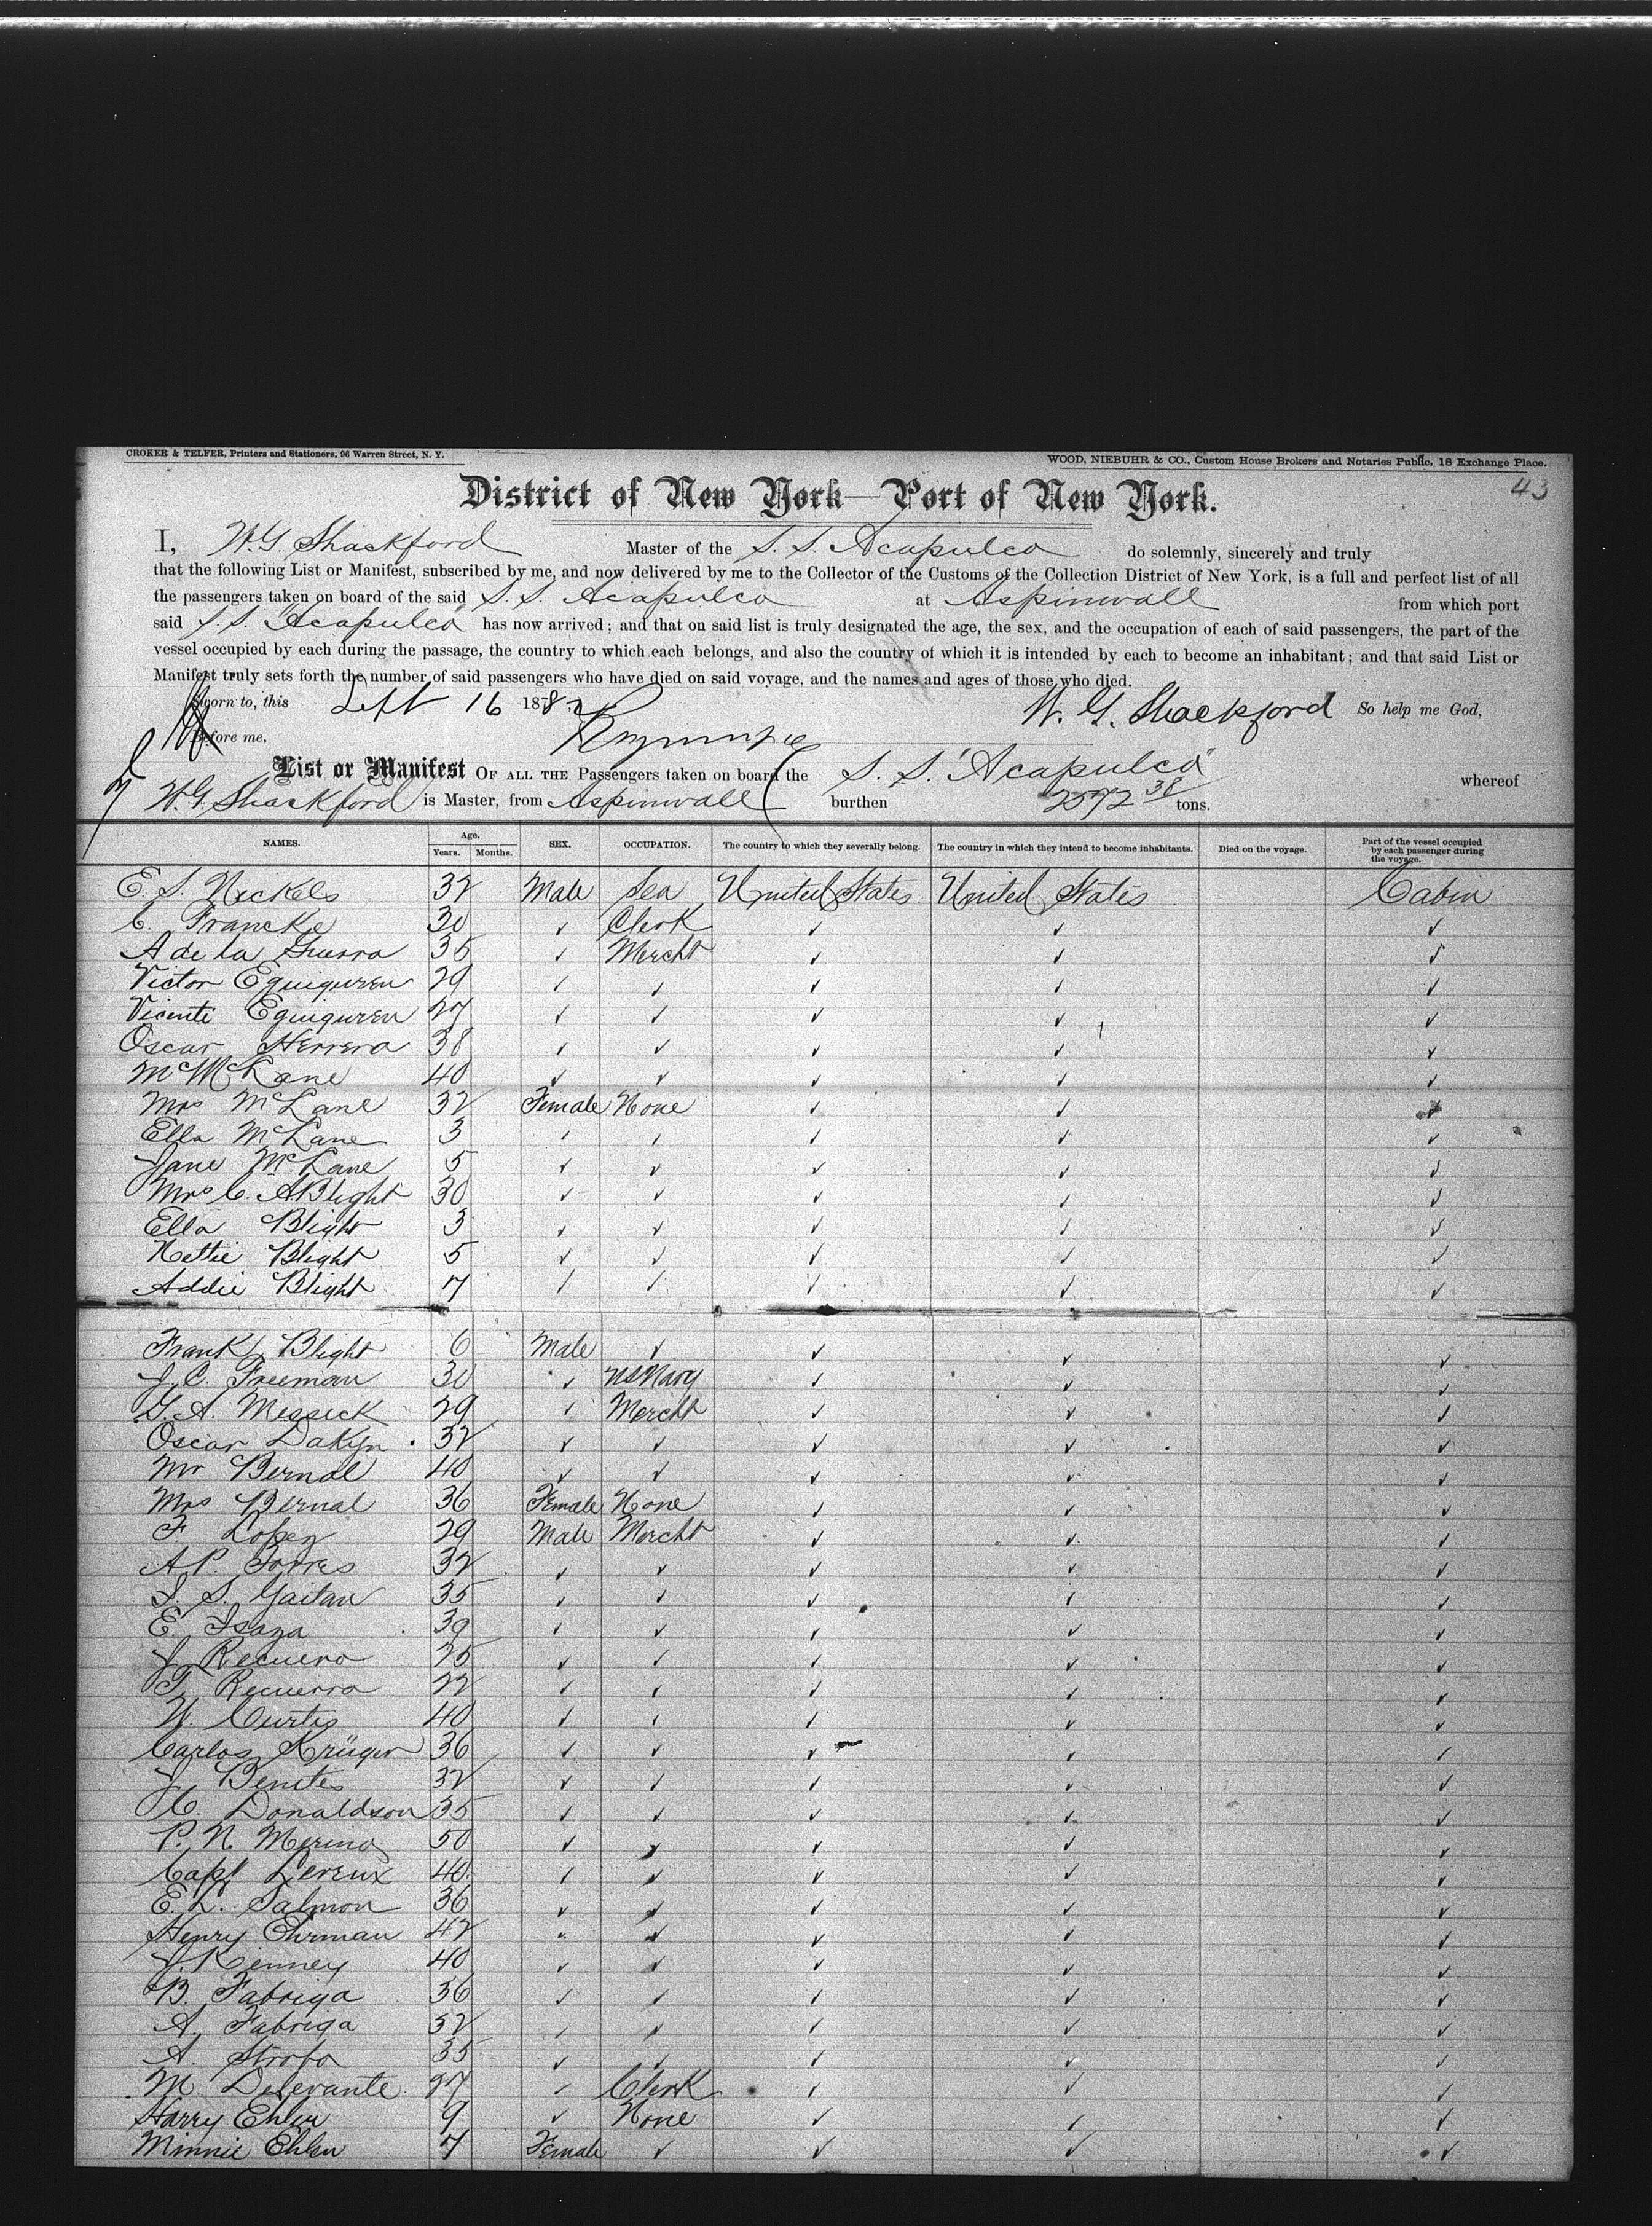 CROKER & TELFER, Printers and Stationers, 96 Warren Street, N. Y.
WOOD, NIEBUHR & CO., Custom House Brokers and Notaries Public, 18 Exchange Place.
43
District of New York—Port of New York.
I, W.G. Shackford Master of the S. S. Acapulco do solemnly, sincerely and truly
that the following List or Manifest, subscribed by me, and now delivered by me to the Collector of the Customs of the Collection District of New York, is a full and perfect list of all
the passengers taken on board of the said S. S. Acapulco at Aspinwall from which port
said S.S. "Acapulco" has now arrived; and that on said list is truly designated the age, the sex, and the occupation of each of said passengers, the part of the
vessel occupied by each during the passage, the country to which each belongs, and also the country of which it is intended by each to become an inhabitant; and that said List or
Manifest truly sets forth the number of said passengers who have died on said voyage, and the names and ages of those who died.
Sworn to, this Sept 16 1882 W. G. Shackford So help me God,
Before me,
List or Manifest OF ALL THE Passengers taken on board the S. S. "Acapulco" whereof
W.G. Shackford is Master, from Aspinwall burthen 2572 38 tons.
NAMES. Age. Years. Months. SEX. OCCUPATION. The country to which they severally belong. The country in which they intend to become inhabitants. Died on the voyage. Part of the vessel occupied by each passenger during the voyage.
E. S. Nickels 32 Male Sea United States United States Cabin
C. Francke 30 ✓ Clerk ✓ ✓ ✓
A de la Guerra 35 ✓ Mercht ✓ ✓ ✓
Victor Eguiguren 29 ✓ ✓ ✓ ✓ ✓
Vicente Eguiguren 27 ✓ ✓ ✓ ✓ ✓
Oscar Herrera 38 ✓ ✓ ✓ ✓ ✓
40 ✓ ✓ ✓ ✓ ✓
Mrs McLane 32 Female None ✓ ✓ ✓
Ella McLane 3 ✓ ✓ ✓ ✓ ✓
Jane McLane 5 ✓ ✓ ✓ ✓ ✓
Mrs C. A Blight 30 ✓ ✓ ✓ ✓ ✓
Ella Blight 3 ✓ ✓ ✓ ✓ ✓
Nettie Blight 5 ✓ ✓ ✓ ✓ ✓
Addie Blight 7 ✓ ✓ ✓ ✓ ✓
Frank Blight 6 Male ✓ ✓ ✓ ✓
J. C. Freeman 30 ✓ US Navy ✓ ✓ ✓
G. A. Messick 29 ✓ Mercht ✓ ✓ ✓
Oscar Dakyn 32 ✓ ✓ ✓ ✓ ✓
Mr Bernal 40 ✓ ✓ ✓ ✓ ✓
Mrs Bernal 36 Female None ✓ ✓ ✓
F. Lopez 29 Male Mercht ✓ ✓ ✓
A. P. Torres 32 ✓ ✓ ✓ ✓ ✓
S. Gaitan 35 ✓ ✓ ✓ ✓ ✓
E. Isaza 39 ✓ ✓ ✓ ✓ ✓
J. Recuero 25 ✓ ✓ ✓ ✓ ✓
Recuerra 22 ✓ ✓ ✓ ✓ ✓
Curtis 40 ✓ ✓ ✓ ✓ ✓
Carlos Krüger 36 ✓ ✓ ✓ ✓ ✓
J. Benites 32 ✓ ✓ ✓ ✓ ✓
C. Donaldson 35 ✓ ✓ ✓ ✓ ✓
P. N. Merino 50 ✓ ✓ ✓ ✓ ✓
Capt Lereux 40 ✓ ✓ ✓ ✓ ✓
E. L. Salmon 36 ✓ ✓ ✓ ✓ ✓
Henry Ehrman 42 ✓ ✓ ✓ ✓ ✓
J. Kenney 40 ✓ ✓ ✓ ✓ ✓
B. Fabriga 36 ✓ ✓ ✓ ✓ ✓
A. Fabriga 32 ✓ ✓ ✓ ✓ ✓
A. 35 ✓ ✓ ✓ ✓ ✓
M. Delevante 27 ✓ Clerk ✓ ✓ ✓
Harry Ehlen 9 ✓ None ✓ ✓ ✓
Minnie Ehlen 7 Female ✓ ✓ ✓ ✓